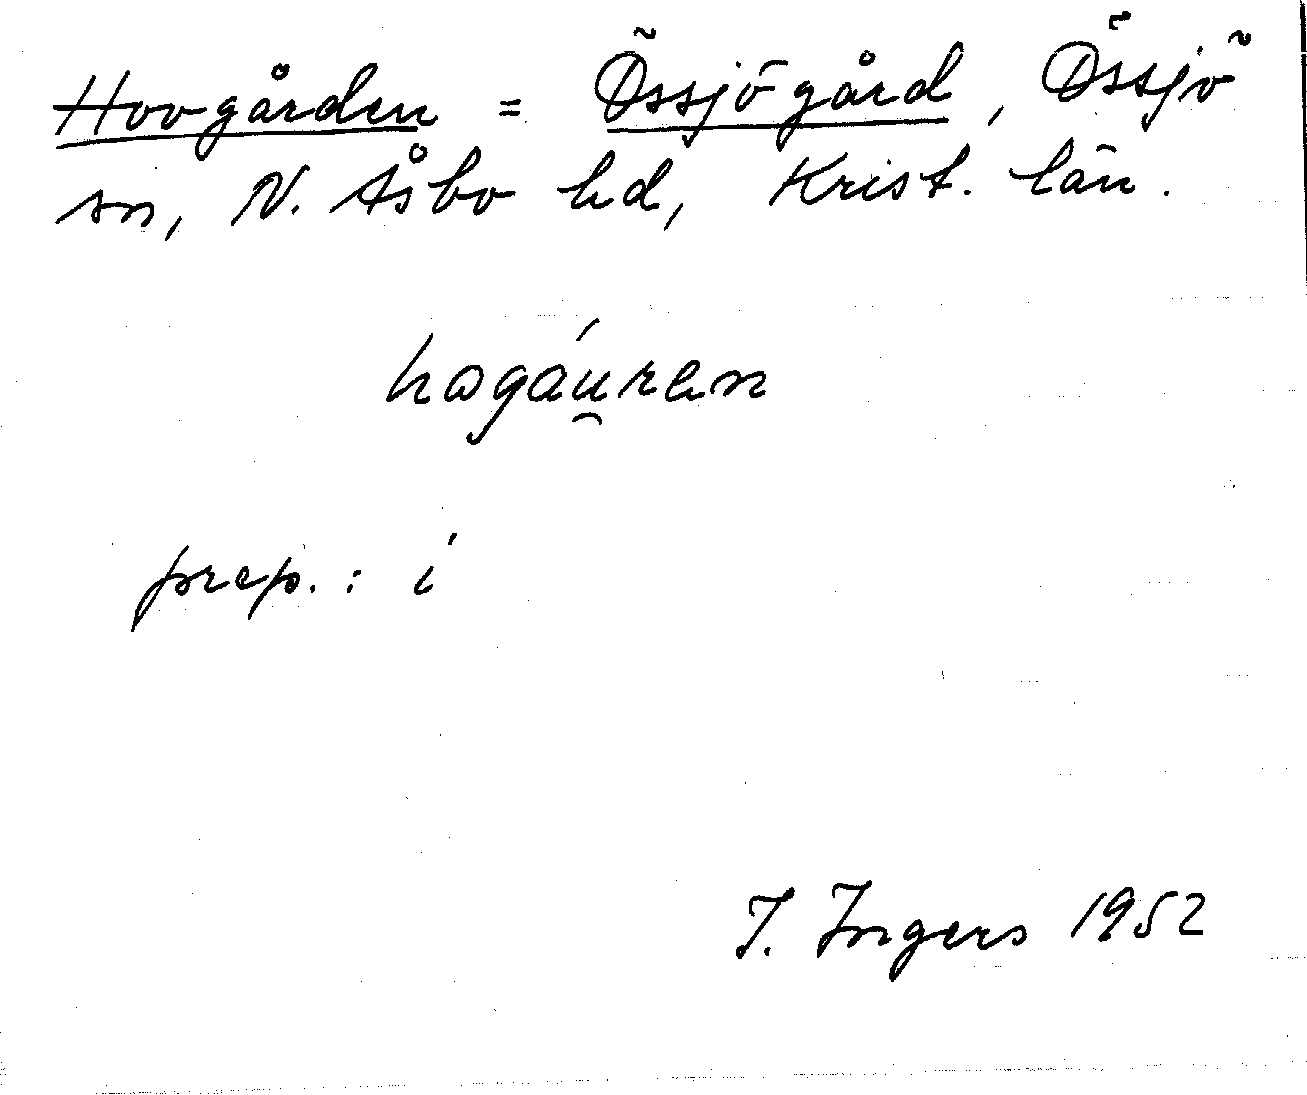 Hovgården = Össjögård, Össjö
sn, N. Åsbo hd, Krist. län.
hogáu̯ren
prep.: i
I. Ingers 1952